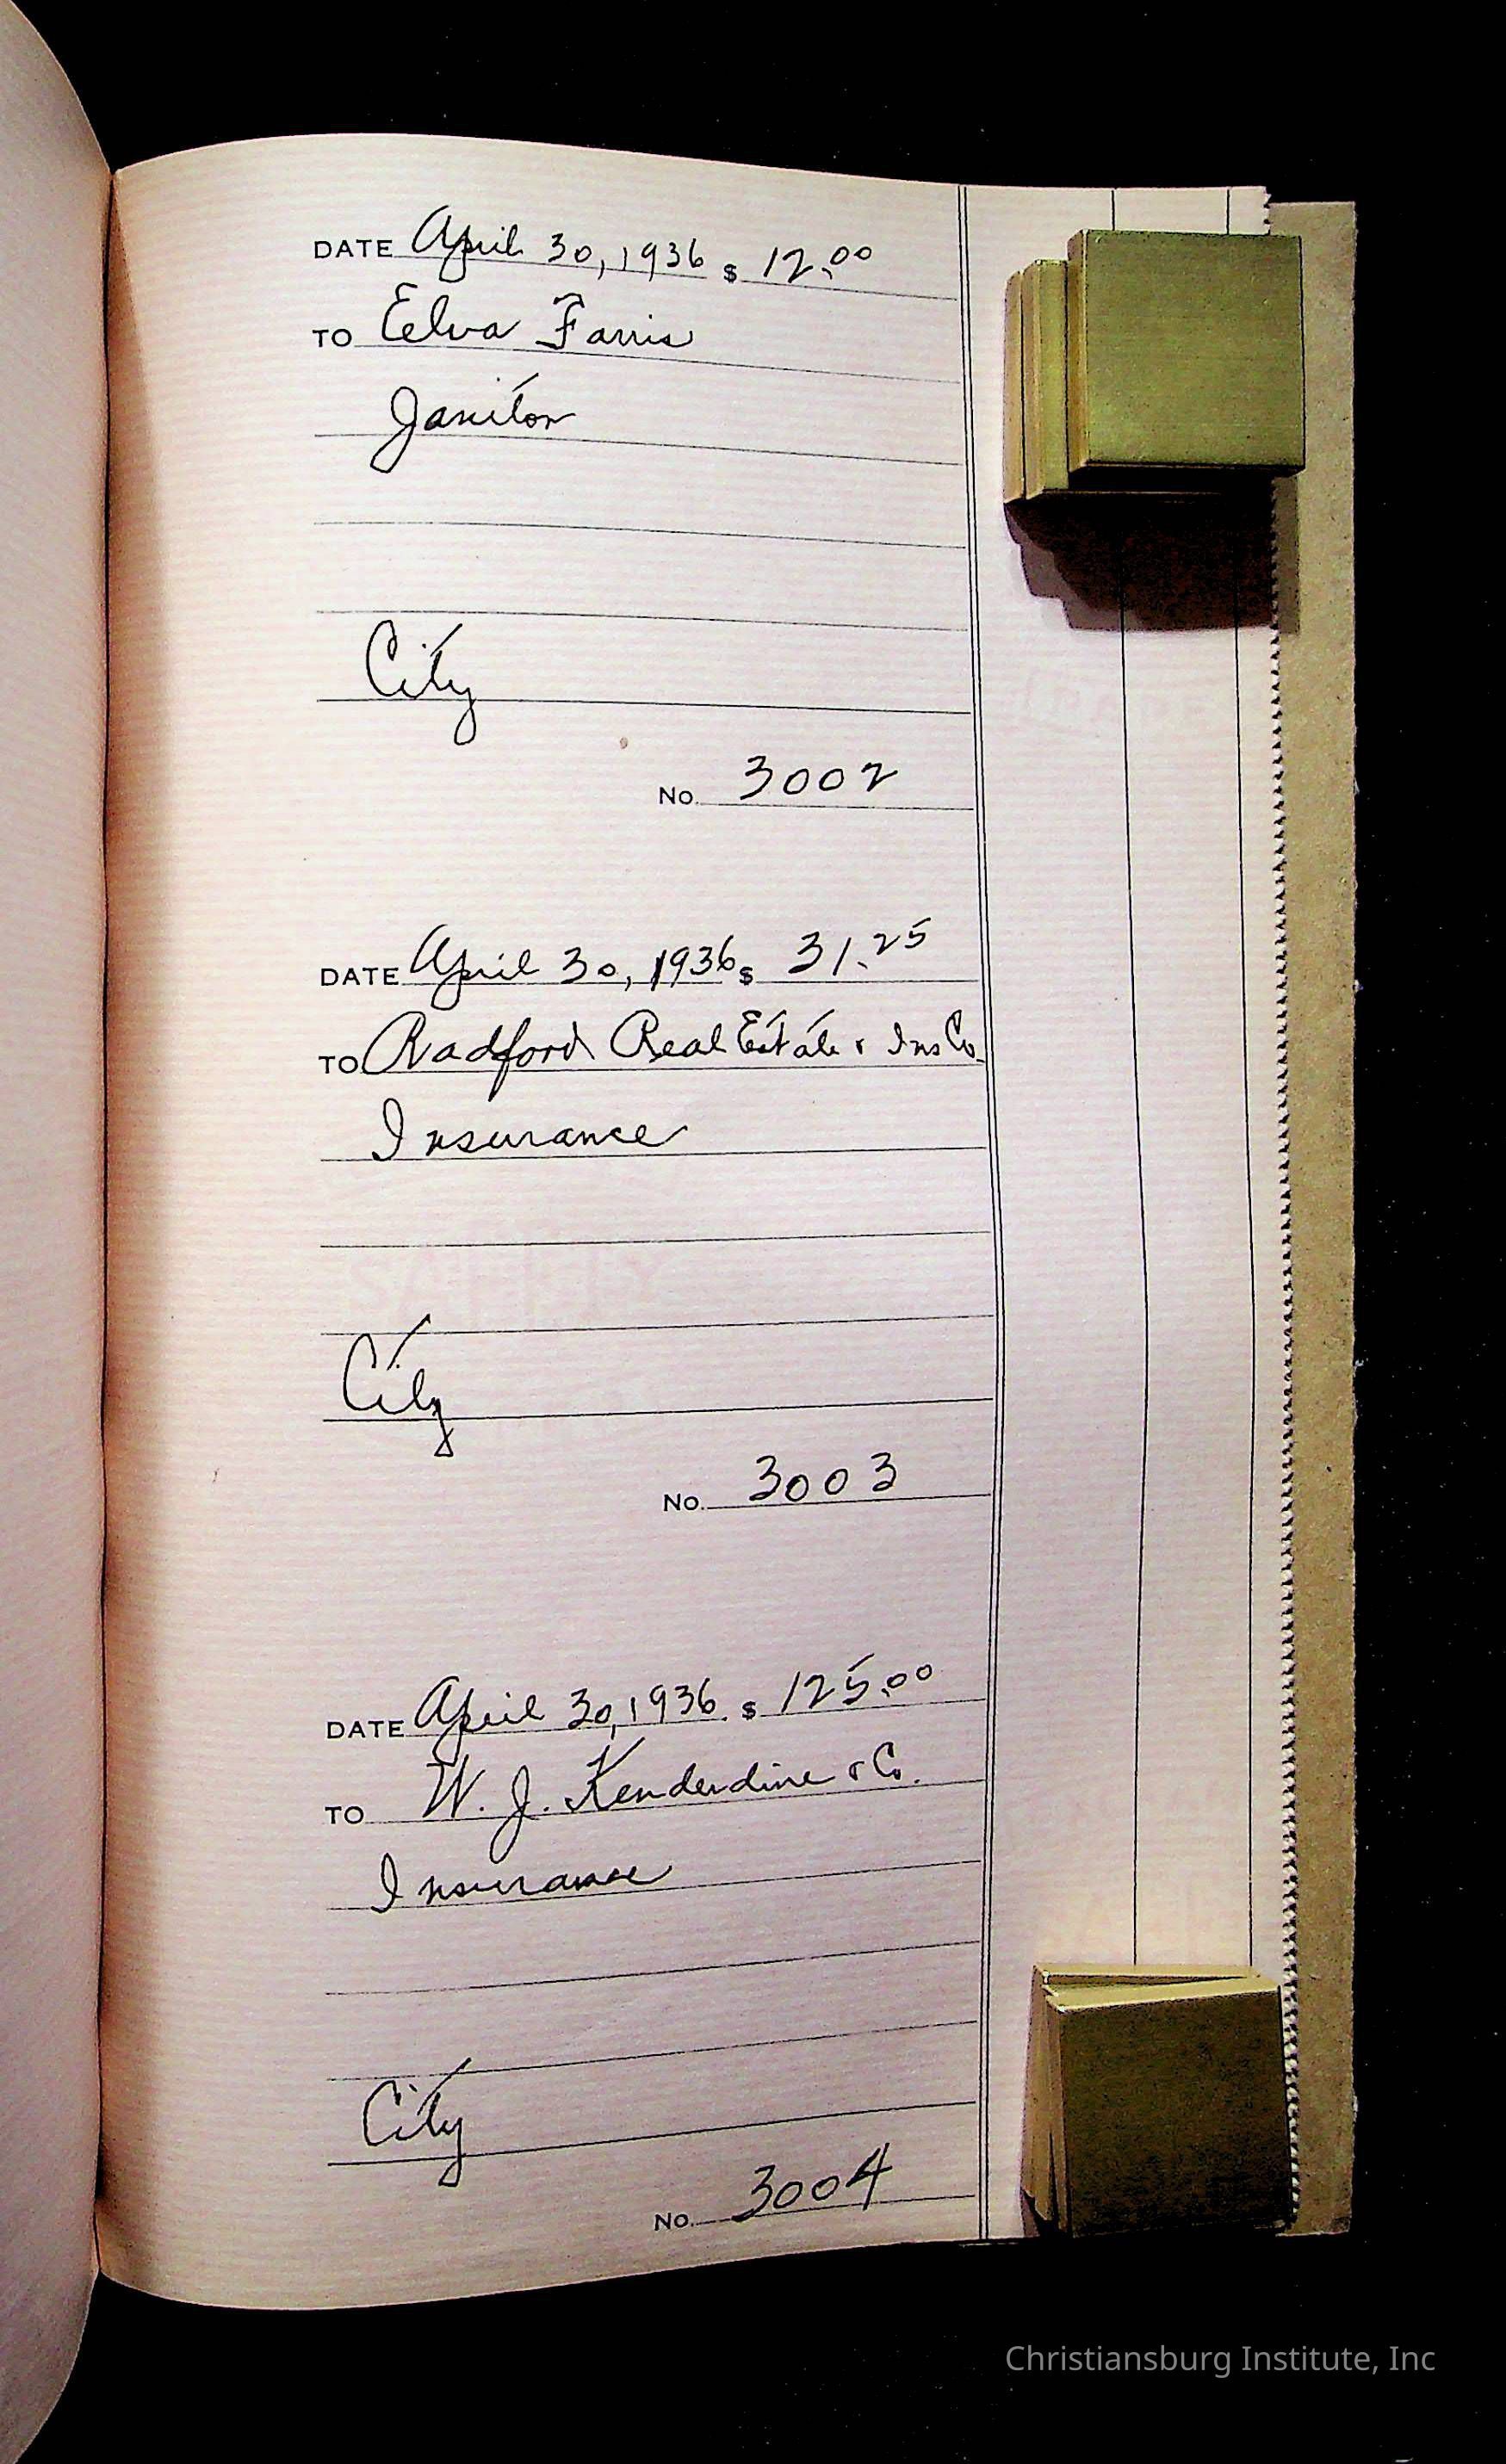 DATE April 30, 1936 $ 12.00
TO Eelva Farris
Janitor
City
No. 3002
DATE April 30, 1936 $ 31.25
TO Radford Real Estate & Ins Co.
Insurance
SAFETY
City
No. 3003
DATE April 30, 1936. $ 125.00
TO W. J. Kenderdine & Co.
Insurance
City
No. 3004
Christiansburg Institute, Inc